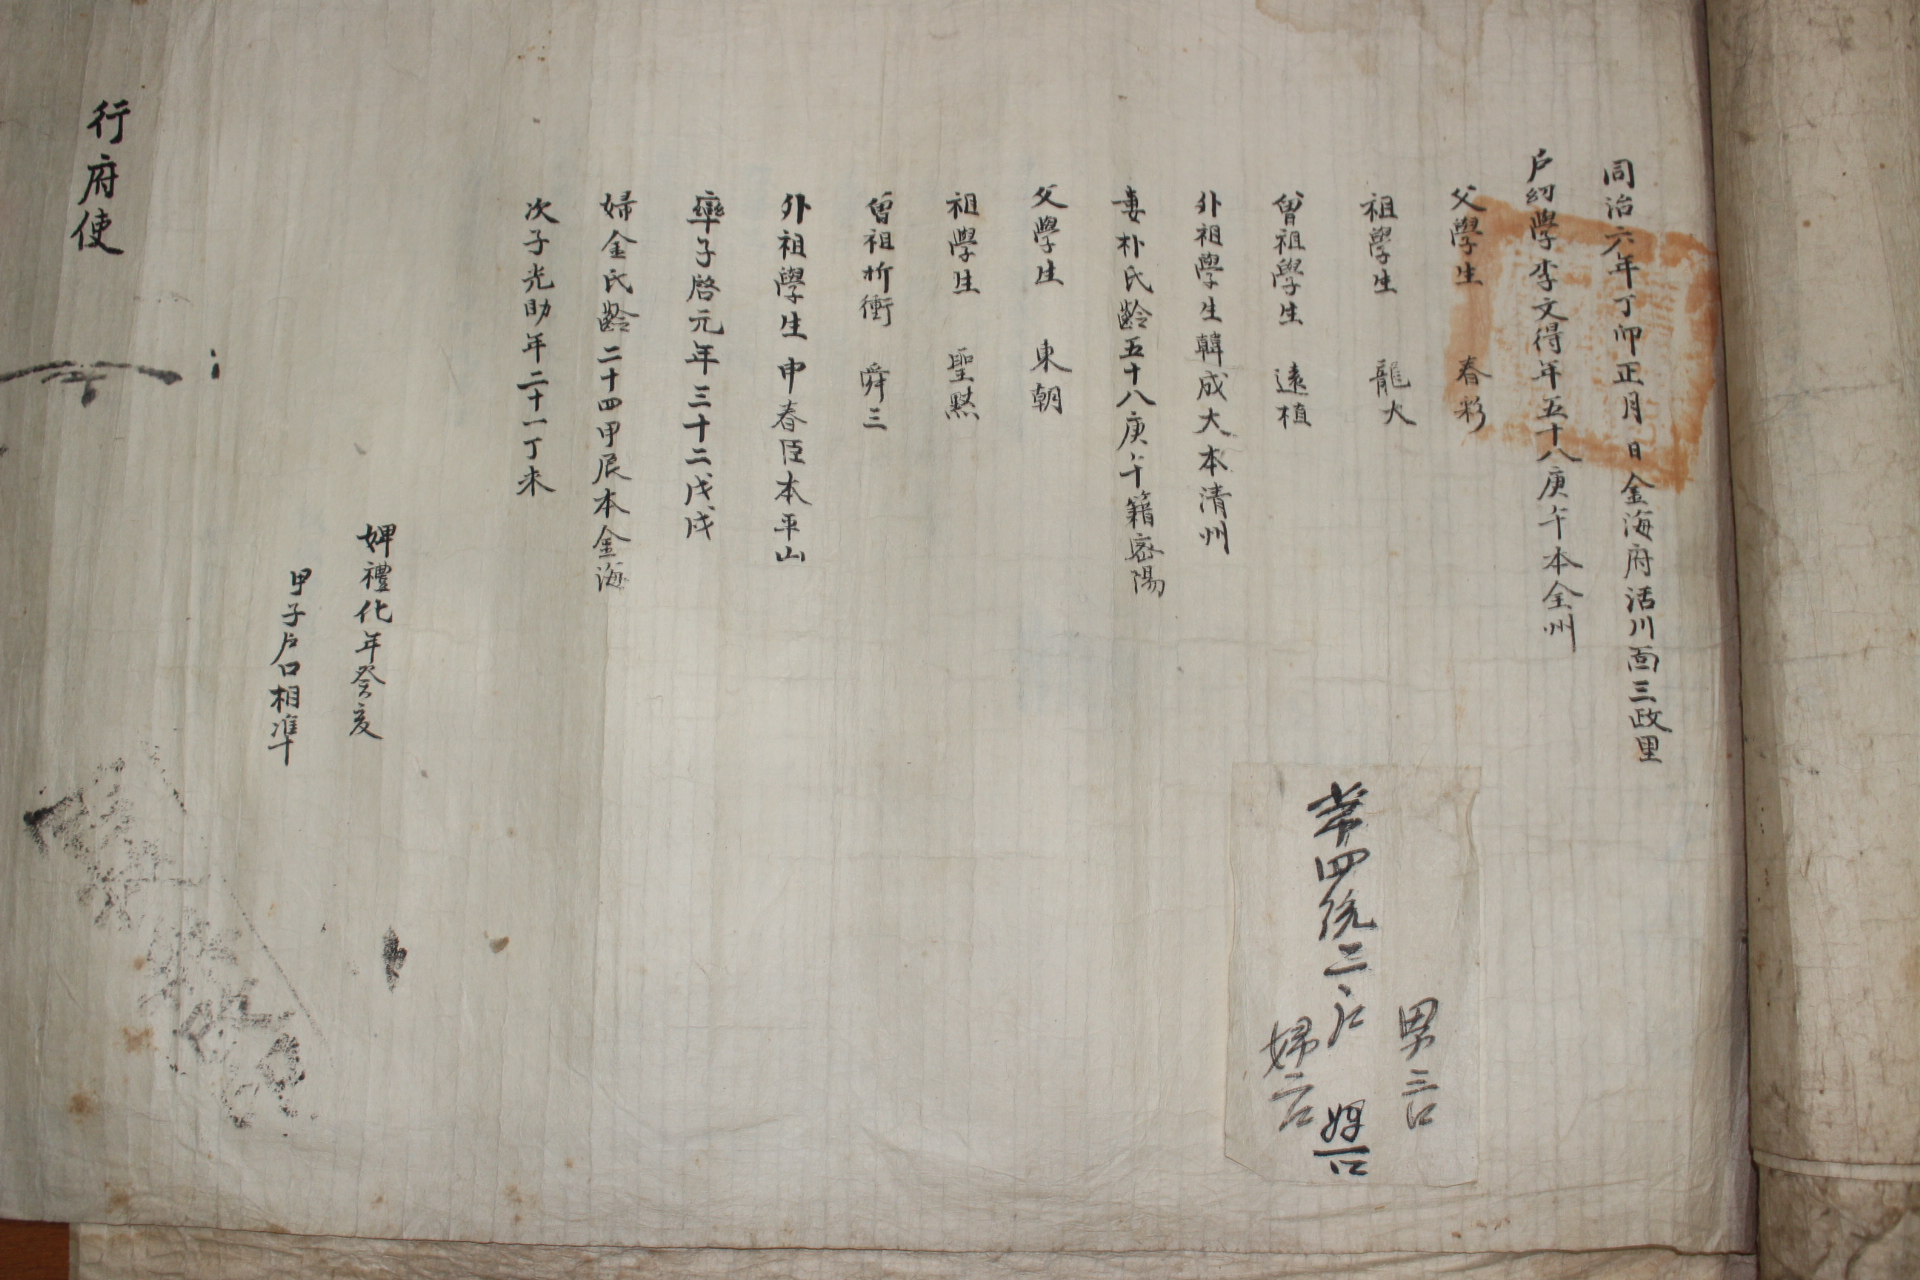 同治六年丁卯正月 日金海府活川面三政里
戶幼學李文得年五十八庚午本全州
父學生 春彩
祖學生 龍大
曾祖學生 遠植
外祖學生韓成大本清州
妻朴氏齡五十八庚午籍密陽
父學生 東朝
祖學生 聖黙
曾祖折衝 舜三
外祖學生申春臣本平山
率子啓元年三十二戊戌
婦金氏齡二十四甲辰本金海
次子光助年二十一丁未
婢禮化年癸亥
甲子戶口相準
行府使
第四統三戶
男三口
婦二口
婢一口